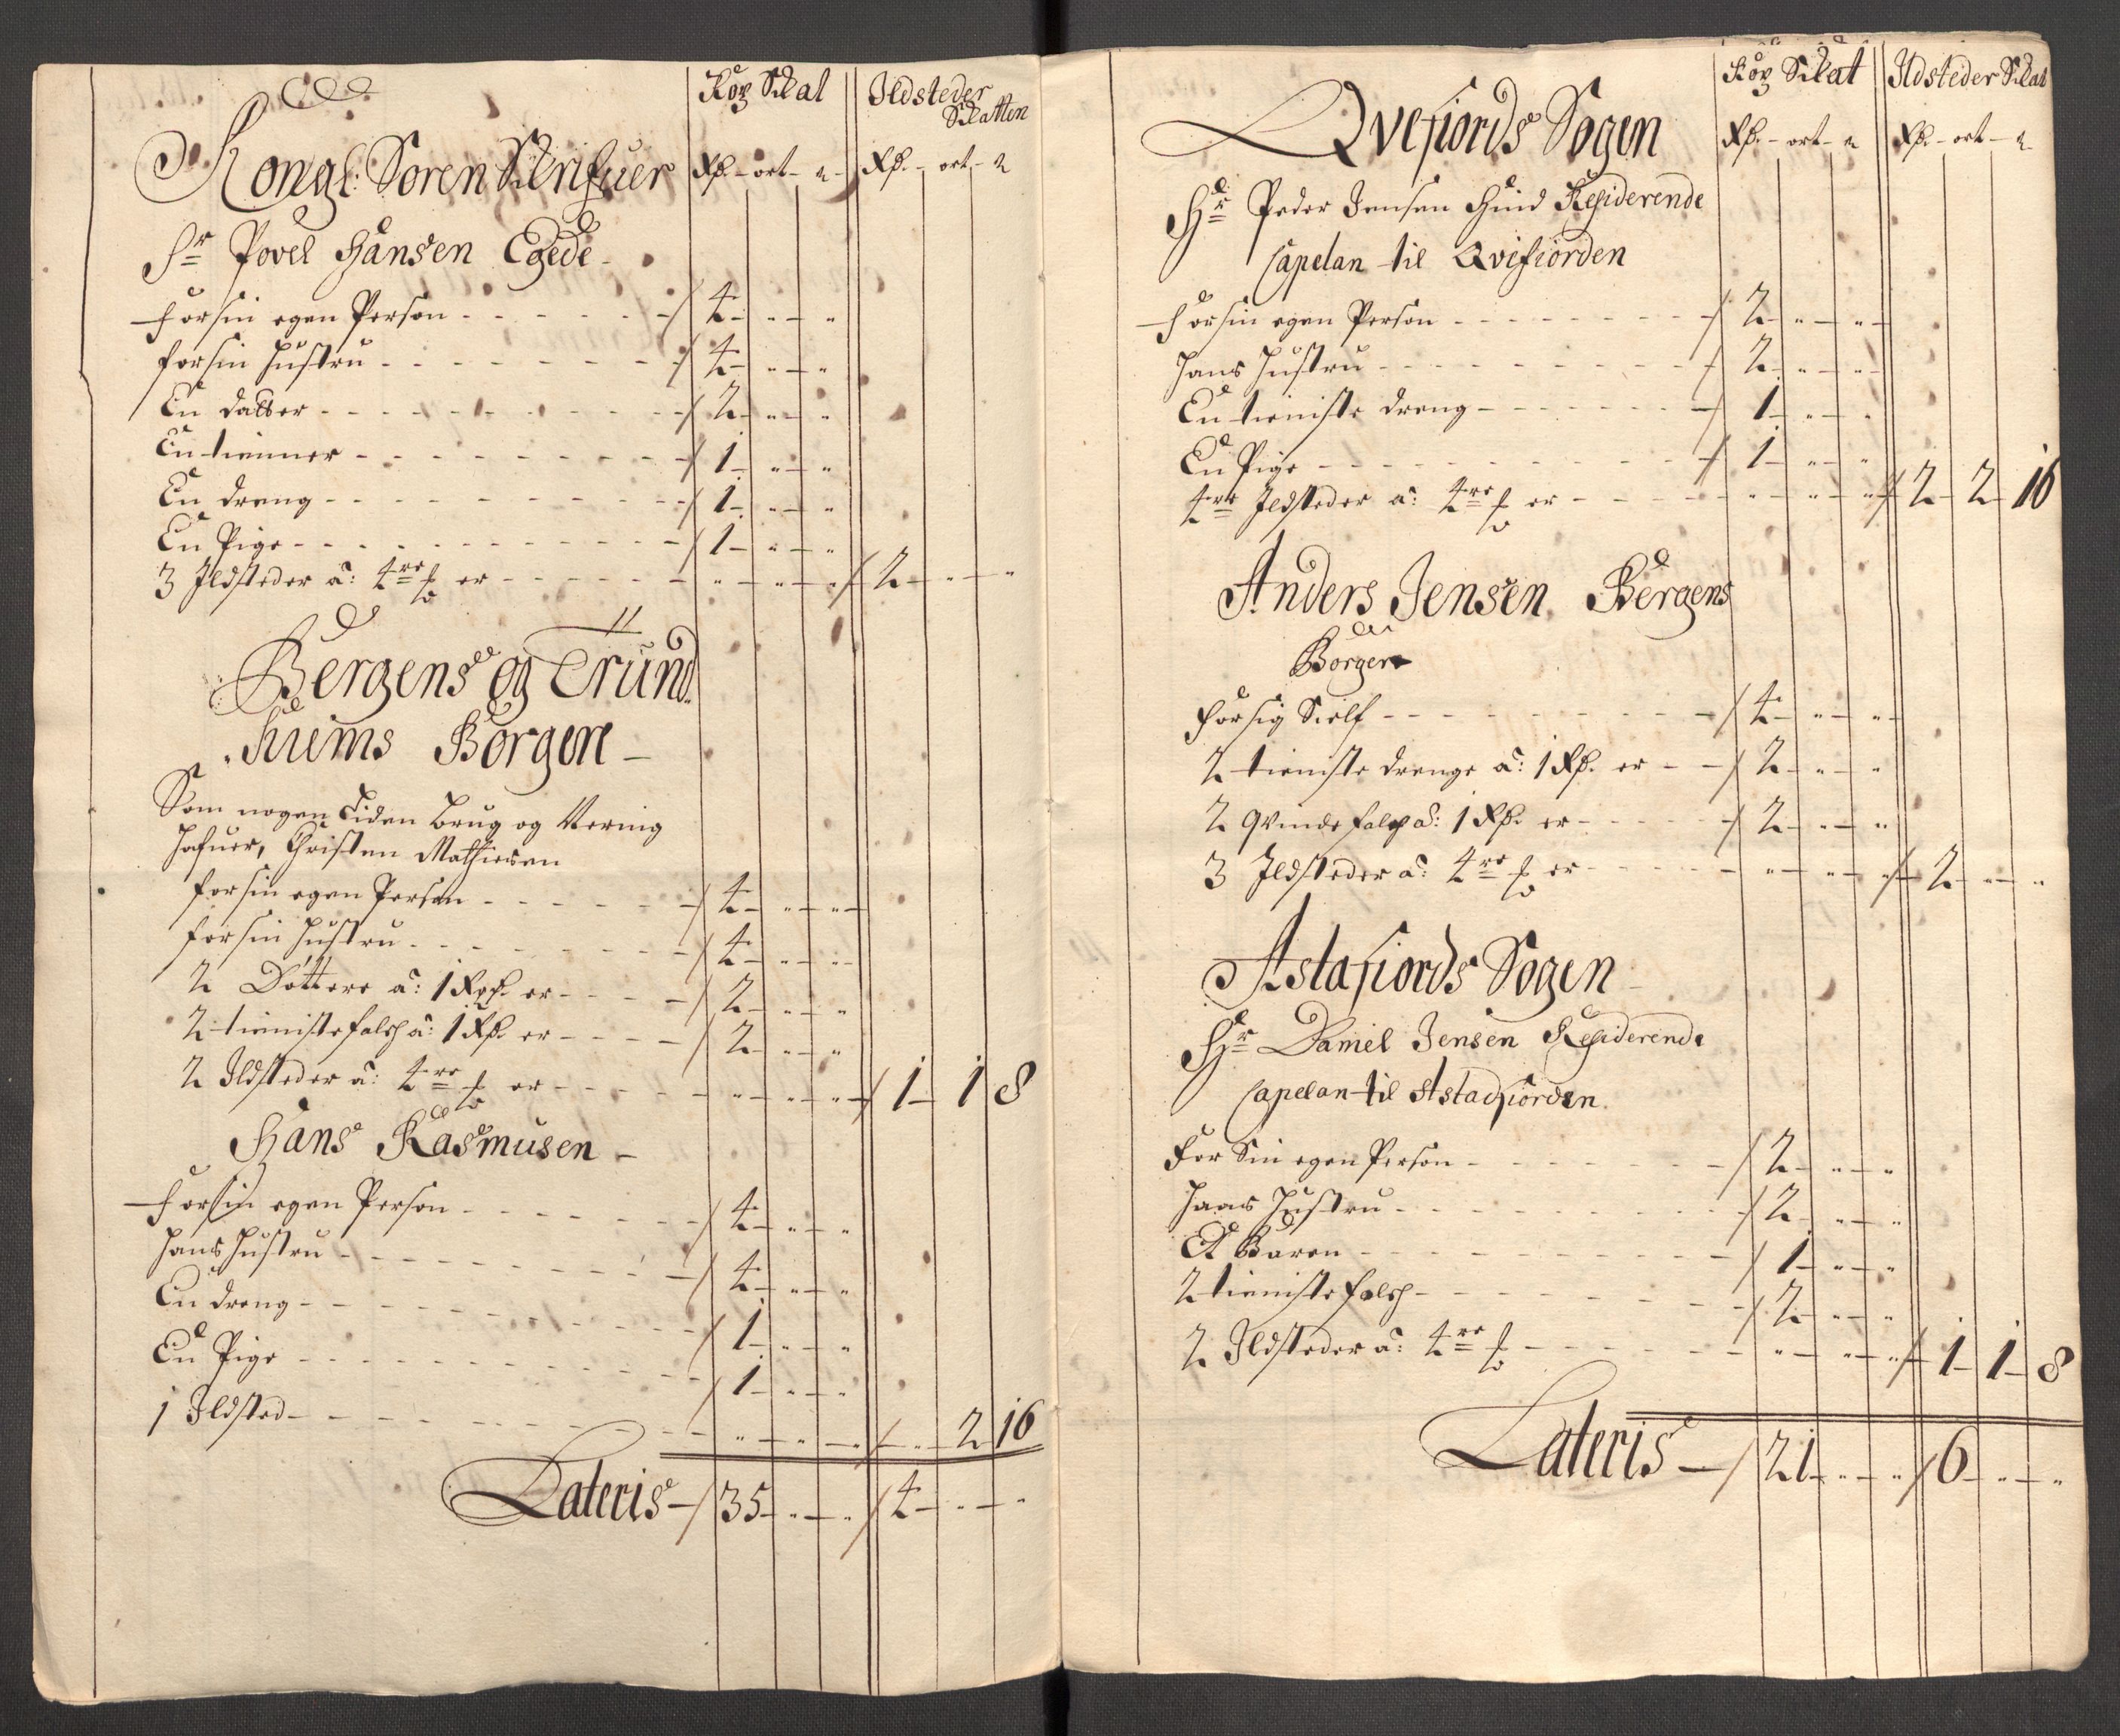 Kop Skat Ildsteder Skatten
Kongl: Soren Skrifuer Rß. - ort - Rß. - ort -
Sr Povel Hansen Egede
for sin egen Person - - - - - 4 - " - "
for sin hustru - - - - - 4 - " - "
En datter - - - - - 2 - " - "
En tienner - - - - - 1 - " - "
En dreng - - - - - 1 - " - "
En Pige - - - - - 1 - " - "
3 Ildsteder a: 4re ß er - - - - - " - " - " 2 - " - "
Bergens og Trund
hiems Borgere
Som nogen Liden brug og Nering
hafuer, Christen Mathiesen
for sin egen Person - - - - - 4 - " - "
for sin hustru - - - - - 4 - " - "
2 Døttere a: 1 Rß. er - - - - 2 - " - "
2 tieniste folch a: 1 Rß. er - - - - 2 - " - "
2 Ildsteder a: 4re ß er - - - - " - " - " 1 - 1 8
Hans Rasmusen
for sin egen Person - - - - - 4 - " - "
hans hustru - - - - - 4 - " - "
En dreng - - - - - 1 - " - "
En Pige - - - - - 1 - " - "
1 Ildsted - - - - - " - " - " " - 2 16
Lateris - 35 - " - " 4 - " - "
Kop Skat Ildsteder Skat
Qvefiords Sogen Rß. - ort - Rß. - ort -
Hr Peder Jensen Hind Residerende
Capelan til Qvefiorden
for sin egen Person - - - - - 2 - " - "
hans hustru - - - - - 2 - " - "
En tieniste dreng - - - - - 1 - " - "
En Pige - - - - - 1 - " - "
4re Ildsteder a: 4re ß er - - - - " - " - " 2 - 2 - 16
Anders Jensen Bergens
Borger
for sig Sielf - - - - - 4 - " - "
2 tieniste drenge a: 1 Rß. er - - 2 - " - "
2 qvinde folch a: 1 Rß. er - - - - 2 - " - "
3 Ildsteder a: 4re ß er - - - - " - " - " 2 - " - "
Astafiords Sogen
Hr Daniel Jensen Residerende
Capelan til Astadfiorden
For Sin egen Person - - - - - 2 - " - "
hans hustru - - - - - 2 - " - "
Et Baren - - - - - 1 - " - "
2 tieniste folch - - - - - 2 - " - "
2 Ildsteder a: 4re ß - - - - - " - " - " 1 - 1 - 8
Lateris - 21 - " - " 6 - " - "